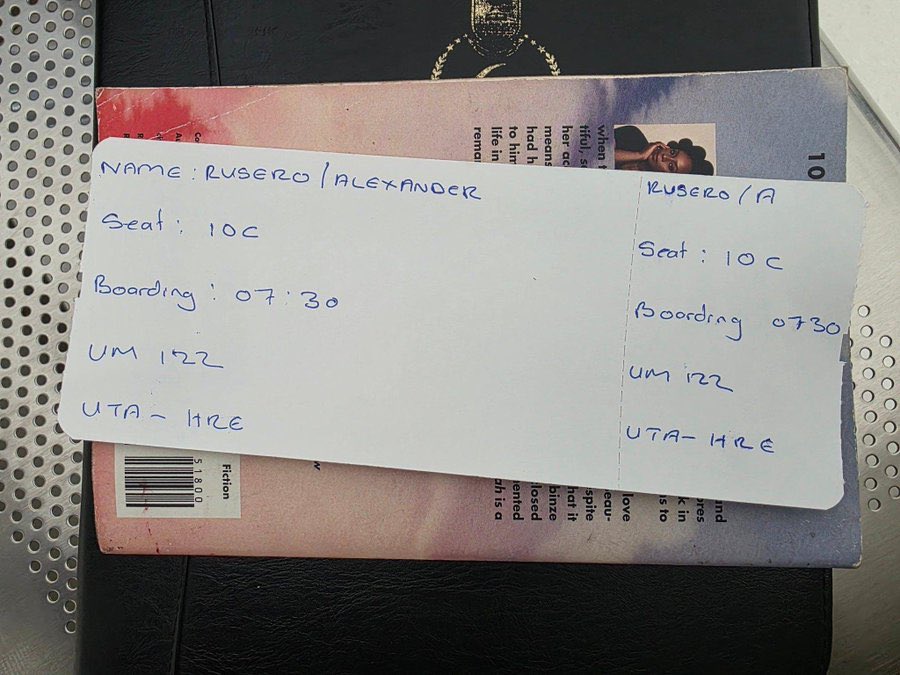 NAME : RUSERO / ALEXANDER
Seat : 10C
Boarding : 07:30
UM 122
UTA - HRE
RUSERO / A
Seat : 10 C
Boarding 0730
UM 122
UTA - HRE
10
when
her
means
had
to him
life in
Fiction
51800
love
spite
hat it
binze
losed
ented
ah is a
und
ores
k in
s to
eau-